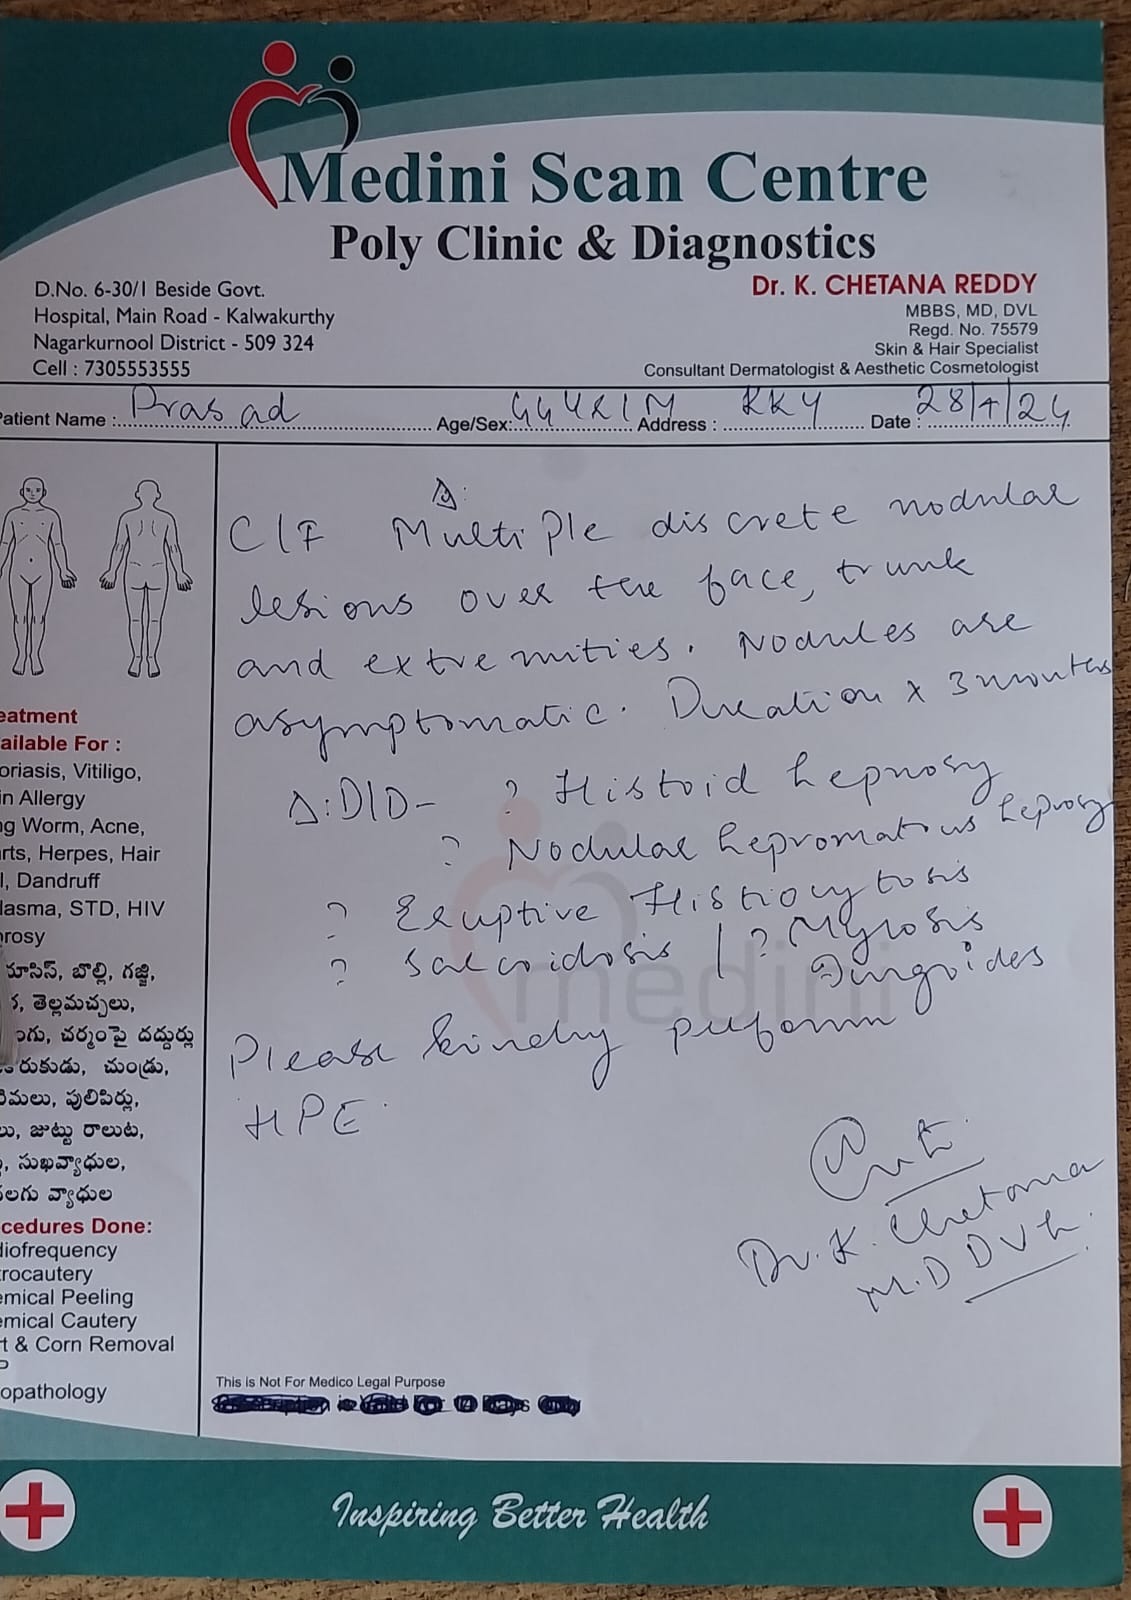 Medini Scan Centre
Poly Clinic & Diagnostics
D.No. 6-30/1 Beside Govt.
Hospital, Main Road - Kalwakurthy
Nagarkurnool District - 509 324
Cell : 7305553555
Dr. K. CHETANA REDDY
MBBS, MD, DVL
Regd. No. 75579
Skin & Hair Specialist
Consultant Dermatologist & Aesthetic Cosmetologist
Patient Name : Prasad Age/Sex: 44 M Address : KKY Date : 28/4/24
C/F Multiple discrete nodular
lesions over the face, trunk
and extremities. Nodules are
asymptomatic. Duration x 3 months
Δ: D/D- ? Histoid Leprosy
? Nodular Lepromatous Leprosy
? Eruptive Histiocytosis
? Sarcoidosis / ? Mycosis
Fungoides
Please kindly perform
HPE
Dr. K. Chetana
M.D DVL
eatment
ailable For :
oriasis, Vitiligo,
in Allergy
ng Worm, Acne,
arts, Herpes, Hair
l, Dandruff
lasma, STD, HIV
rosy
బొల్లి, గజ్జి,
తెల్లమచ్చలు,
చర్మంపై దద్దుర్లు
చుండ్రు,
పులిపిర్లు,
జుట్టు రాలుట,
సుఖవ్యాధుల,
వ్యాధుల
cedures Done:
diofrequency
trocautery
emical Peeling
emical Cautery
t & Corn Removal
opathology
This is Not For Medico Legal Purpose
Inspiring Better Health
medini